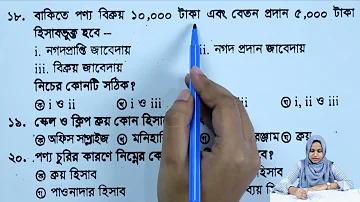 ১৮. বাকিতে পণ্য বিক্রয় ১০,০০০ টাকা এবং বেতন প্রদান ৫,০০০ টাকা
হিসাবভুক্ত হবে –
i. নগদপ্রাপ্তি জাবেদায় ii. নগদ প্রদান জাবেদায়
iii. বিক্রয় জাবেদায়
নিচের কোনটি সঠিক?
ক i ও ii খ i ও iii ঘ i, ii ও iii
১৯. স্কেল ও ক্লিপ ক্রয় কোন হিসাব
ক অফিস সাপ্লাইজ খ ঘ ক্রয়
২০. পণ্য চুরির কারণে নিম্নের
ক ক্রয় হিসাব
গ পাওনাদার হিসাব হিসাব